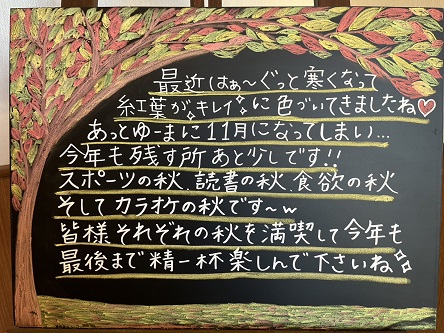 最近はぁ〜ぐっと寒くなって
紅葉がキレイに色づいてきましたね♡
あっとゆーまに11月になってしまい...
今年も残す所あと少しです!!
スポーツの秋、読書の秋、食欲の秋
そしてカラオケの秋です〜w
皆様それぞれの秋を満喫して今年も
最後まで精一杯楽しんで下さいね